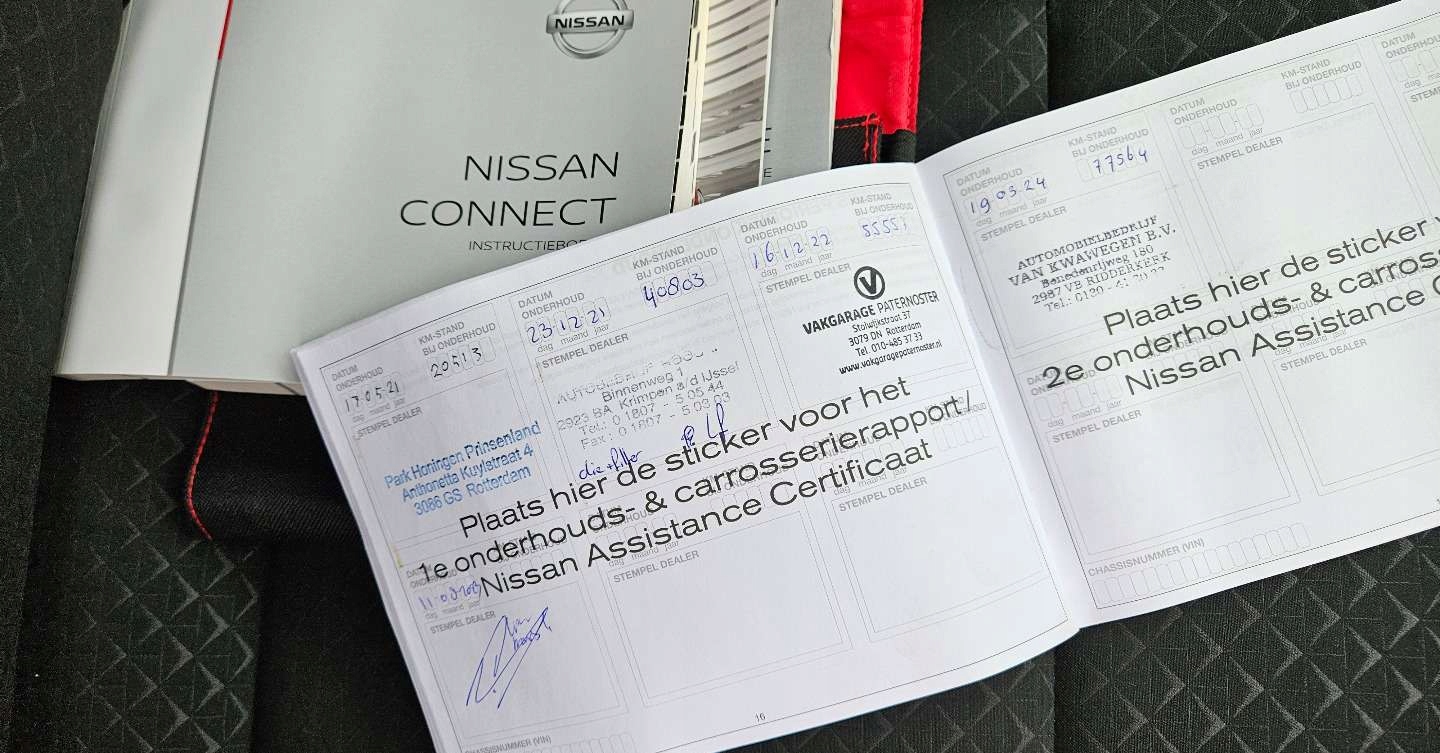 NISSAN
NISSAN
CONNECT
INSTRUCTIEBOE
DATUM
ONDERHOUD
KM-STAND
BIJ ONDERHOUD
17.05.21
20513
dag maand jaar
STEMPEL DEALER
Park Honingen Prinsenland
Anthonetta Kuylstraat 4
3086 GS Rotterdam
DATUM
ONDERHOUD
KM-STAND
BIJ ONDERHOUD
23.12.21
40803
dag maand jaar
STEMPEL DEALER
Binnenweg 1
2923 BA Krimpen a/d IJssel
Tel.: 0 1807 - 5 05 44
Fax: 0 1807 - 5 03 63
DATUM
ONDERHOUD
KM-STAND
BIJ ONDERHOUD
16.12.22
55551
dag maand jaar
STEMPEL DEALER
VAKGARAGE PATERNOSTER
Stolwijkstraat 37
3079 DN Rotterdam
Tel. 010-485 37 33
www.vakgaragepaternoster.nl
Plaats hier de sticker voor het
1e onderhouds- & carrosserierapport /
Nissan Assistance Certificaat
dag maand jaar
STEMPEL DEALER
STEMPEL DEALER
STEMPEL DEALER
CHASSISNUMMER (VIN)
16
DATUM
ONDERHOUD
KM-STAND
BIJ ONDERHOUD
19.03.24
77564
dag maand jaar
STEMPEL DEALER
AUTOMOBIELBEDRIJF
VAN KWAWEGEN B.V.
Benedenrijweg 180
2987 VB RIDDERKERK
DATUM
ONDERHOUD
KM-STAND
BIJ ONDERHOUD
dag maand jaar
STEMPEL DEALER
DATUM
ONDERHOUD
Plaats hier de sticker v
2e onderhouds- & carross
Nissan Assistance C
STEMPEL DEALER
STEMPEL DEALER
CHASSISNUMMER (VIN)